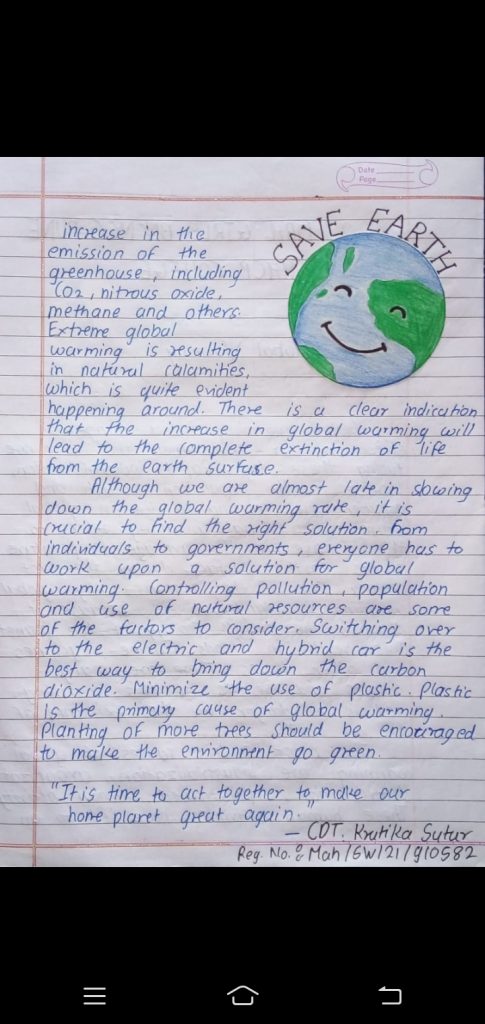 Date
Page
SAVE EARTH
increase in the
emission of the
greenhouse, including
CO2, nitrous oxide,
methane and others.
Extreme global
warming is resulting
in natural calamities,
which is quite evident
happening around. There is a clear indication
that the increase in global warming will
lead to the complete extinction of life
from the earth surfase.
Although we are almost late in slowing
down the global warming rate, it is
crucial to find the right solution. From
individuals to governments, everyone has to
work upon a solution for global
warming. Controlling pollution, population
and use of natural resources are some
of the factors to consider. Switching over
to the electric and hybrid car is the
best way to bring down the carbon
dioxide. Minimize the use of plastic. Plastic
is the primary cause of global warming.
Planting of more trees should be encouraged
to make the environment go green.
"It is time to act together to make our
home planet great again."
— CDT. Krutika Sutur
Reg. No. : Mah/SW/21/910582